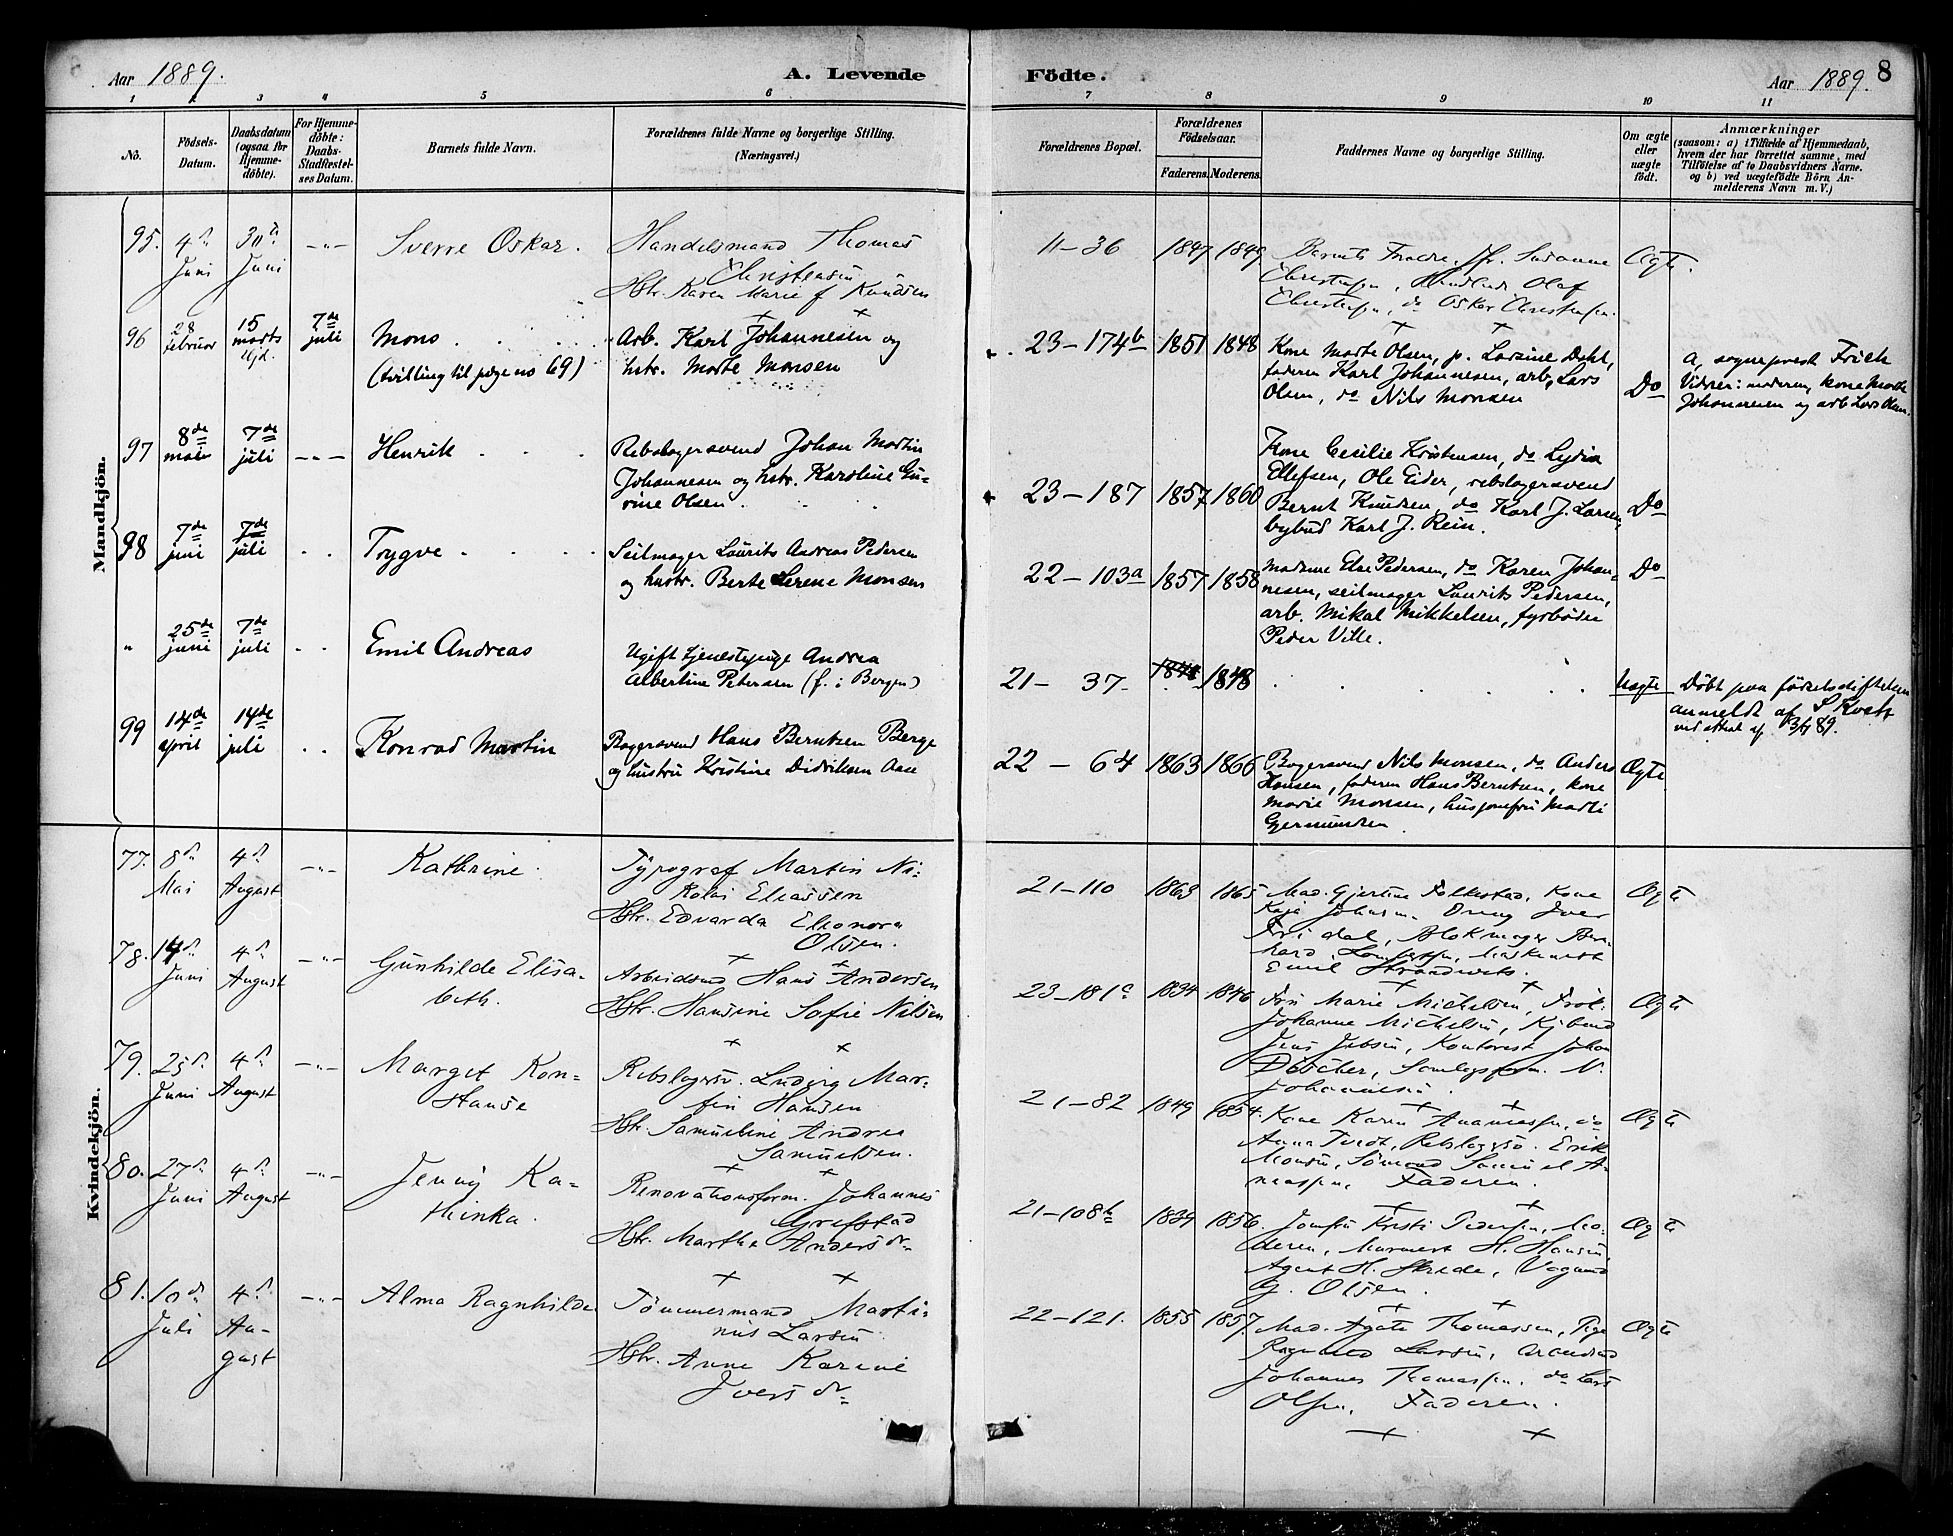 Aar 1889.
A. Levende
Födte.
Aar 1889.
8
1 2 3 4 5 6
7 8 9 10 11
No.
Födsels-
Datum.
Daabsdatum
(ogsaa for
Hjemme-
döbte).
For Hjemme-
döbte:
Daabs-
Stadfæstel-
ses Datum.
Barnets fulde Navn.
Forældrenes fulde Navne og borgerlige Stilling.
(Næringsvei.)
Forældrenes Bopæl.
Forældrenes
Födselsaar.
Faderens. Moderens.
Faddernes Navne og borgerlige Stilling.
Om ægte
eller
uægte
födt.
Anmærkninger
(saasom: a) i Tilfælde af Hjemmedaab,
hvem der har forrettet samme, med
Tilföielse af to Daabsvidners Navne.
og b) ved uægtefödte Börn An-
melderens Navn m. V.)
Mandkjön.
95.
4de
Juni
30te
Juni
-"-
Sverre Oskar.
Handelsmand Thomas
Christensen
Hstr. Karen Marie f Knudsen
11-36
1847
1849
Susanne
Olaf
do Oskar Christensen.
Ægte.
96
28
februar
15
marts
Hjd.
7de
juli
Mons
(tvilling til pige no 69)
Arb. Karl Johannesen og
hstr. Marte Monsen
23-174b
1851
1848
Kone Marte Olsen, p. Larsine Dahl,
faderen Karl Johannesen, arb. Lars
Olsen, do Nils Monsen
Do
a, sogneprest Frich
Vidner: moderen, kone Marte
Johannesen og arb Lars Olsen.
97
8de
mai
7de
juli
-"-
Henrik
Rebslagersvend Johan Martin
Johannesen og hstr. Karoline Gu-
rine Olsen.
23-187
1857
1860
Kone Cecilie Kristensen, do Lydia
Ellefsen, Ole Eider, rebslagersvend
Bernt Knudsen, do Karl J. Larsen,
bybud Karl J. Rein.
Do
98
7de
juni
7de
juli
Trygve
Seilmager Laurits Andreas Pedersen
og hustr. Berte Serene Monsen
22-103a
1857
1858
madame Else Pedersen, do Karen Johan-
nesen, seilmager Laurits Pedersen,
arb. Mikal Mikkelsen, fyrbøder
Peder Ville.
Do
"
25de
juni
7de
juli
Emil Andreas
Ugift tjenestepige Andrea
Albertine Petersen (f. i Bergen)
21- 37-
1848
1848
Uægte
Døbt paa fødselsstiftelsen
anmeldt af
ved attest af 89.
99
14de
april
14de
juli
Konrad Martin
Bagersvend Hans Berntsen Berge
og hustru Kristine Didriksen Aase
22-64
1863
1866
Bagersvend Nils Monsen, do Anders
Hansen, faderen Hans Berntsen, kone
Marie Monsen, husjomfru Marti
Gjermundsen
Ægte
Kvindekjön.
77.
8de
Mai
4de
August
-"-
Kathrine.
Typograf Martin Ni-
kolai Eliassen
Hstr. Edvarda Eleonora
Olsen.
21-110
1863
1865
Mad. Gjertine Folkestad, Kone
Kaja Johnsen, Iver
Fridal, Blokmager Bern-
hard
Emil
Ægte
78.
14de
Juni
4de
August
-"-
Gunhilde Elisa-
beth.
Arbeidsmd Hans Andersen
Hstr. Hansine Sofie Nilsen
23-181c
1834
1846
Fru Marie Michelsen, Frøk.
Johanne Michelsen, Kjbmd
Jens Jebsen, Kontorist Johan
Döscher, N.
Johannesen.
Ægte
79.
25de
Juni
4de
August
-"-
Marget Kon-
stanse
Rebslagersv. Ludvig Mar-
tin Hansen
Hstr. Samueline Andrea
Samuelsen.
21-82
1849
1854.
Kone Karen Ananiassen, do
Anna Tvedt, Rebslagersv. Erik
Monsen, Sömand Samuel A-
naassen, Faderen.
Ægte
80.
27de
Juni
4de
August
-"-
Jenny Ka-
thinka.
Renovationsform. Johannes
Grefstad
Hstr. Marthe Andersdr
21-108b
1839
1856.
Jomfru Kristi Pedersen, Mo-
deren, H. Hansen,
Agent H. Skrede,
G. Olsen.
Ægte
81.
10de
Juli
4de
Au-
gust
-"-
Alma Ragnhilde
Tömmermand Marti-
nus Larsen
Hstr. Anne Karine
Iversdr
22-121.
1855
1857.
Mad. Agate Thomassen, Pige
Ragnhild Larsen, Arbeidsmd
Johannes Thomassen, do Lars
Olsen, Faderen.
Ægte